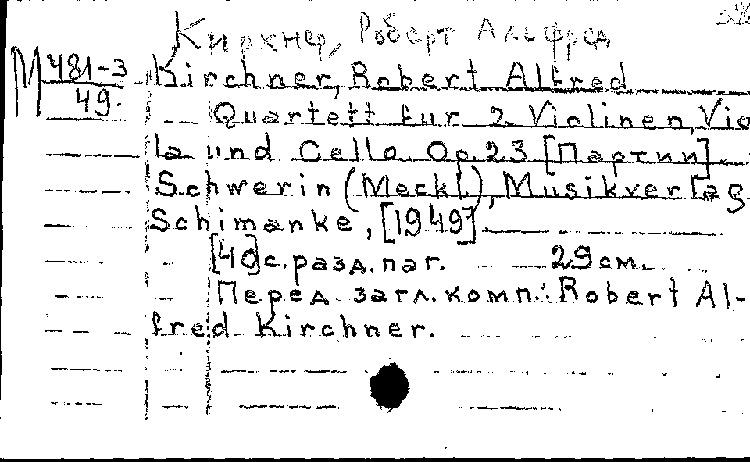 Кирхнер, Роберт Альфред
М 481-3
49.
Kirchner, Robert Alfred
Quartett für 2 Violinen, Vio
la und Cello Op. 23 [Партии]
Schwerin (Meckl.), Musikverlag
Schimanke, [1949]
[40] с. разд. паг. 29 см.
Перед загл. комп.: Robert Al-
fred Kirchner.